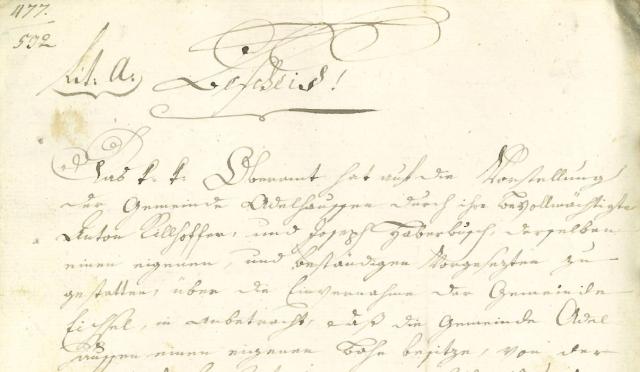 477.
532
Lit: A: Bescheid!
Das k. k. Oberamt hat auf die Vorstellung
der Gemeinde Adelhaussen durch ihre bevollmächtigte
Anton Killhoffer, und Joseph Haberbusch, derselben
einen eigenen, und beständigen Vorgesezten zu
gestatten, über die Einvernahme der Gemeinde
Eichsel, in Anbetracht, daß die Gemeinde Adel
haussen einen eigenen Bahn besitze, von der